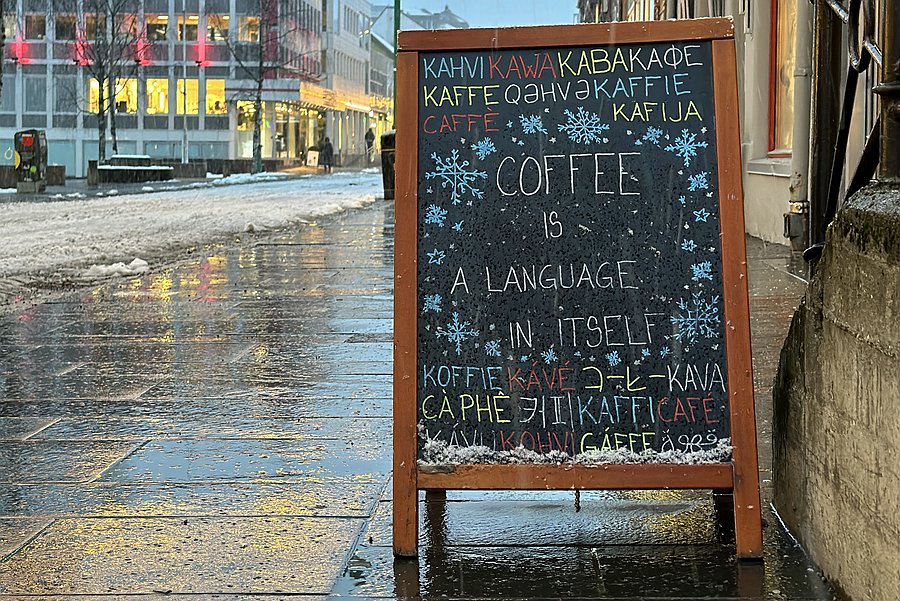 KAHVI KAWA KABA KAФE
KAFFE QƏHVƏ KAFFIE
CAFFÉ KAFIJA
COFFEE
IS
A LANGUAGE
IN ITSELF
KOFFIE KÁVÉ コーヒー KAVA
CÀ PHÊ 커피 KAFFI CAFÉ
KOHVI GÁFFE